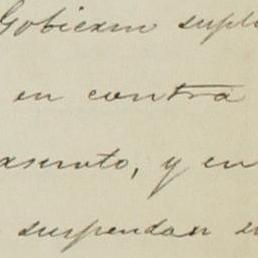 Gobierno supli
en contra
asunto, y en
suspendan